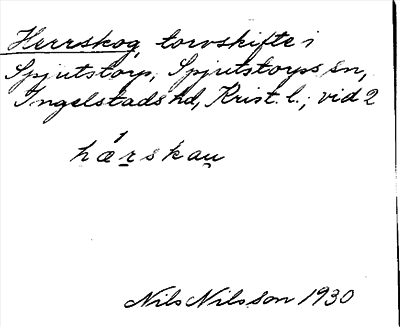 Herrskog, torvskifte i
Spjutstorp, Spjutstorps sn,
Ingelstads hd, Krist. l.; vid 2
hǽrskau
Nils Nilsson 1930